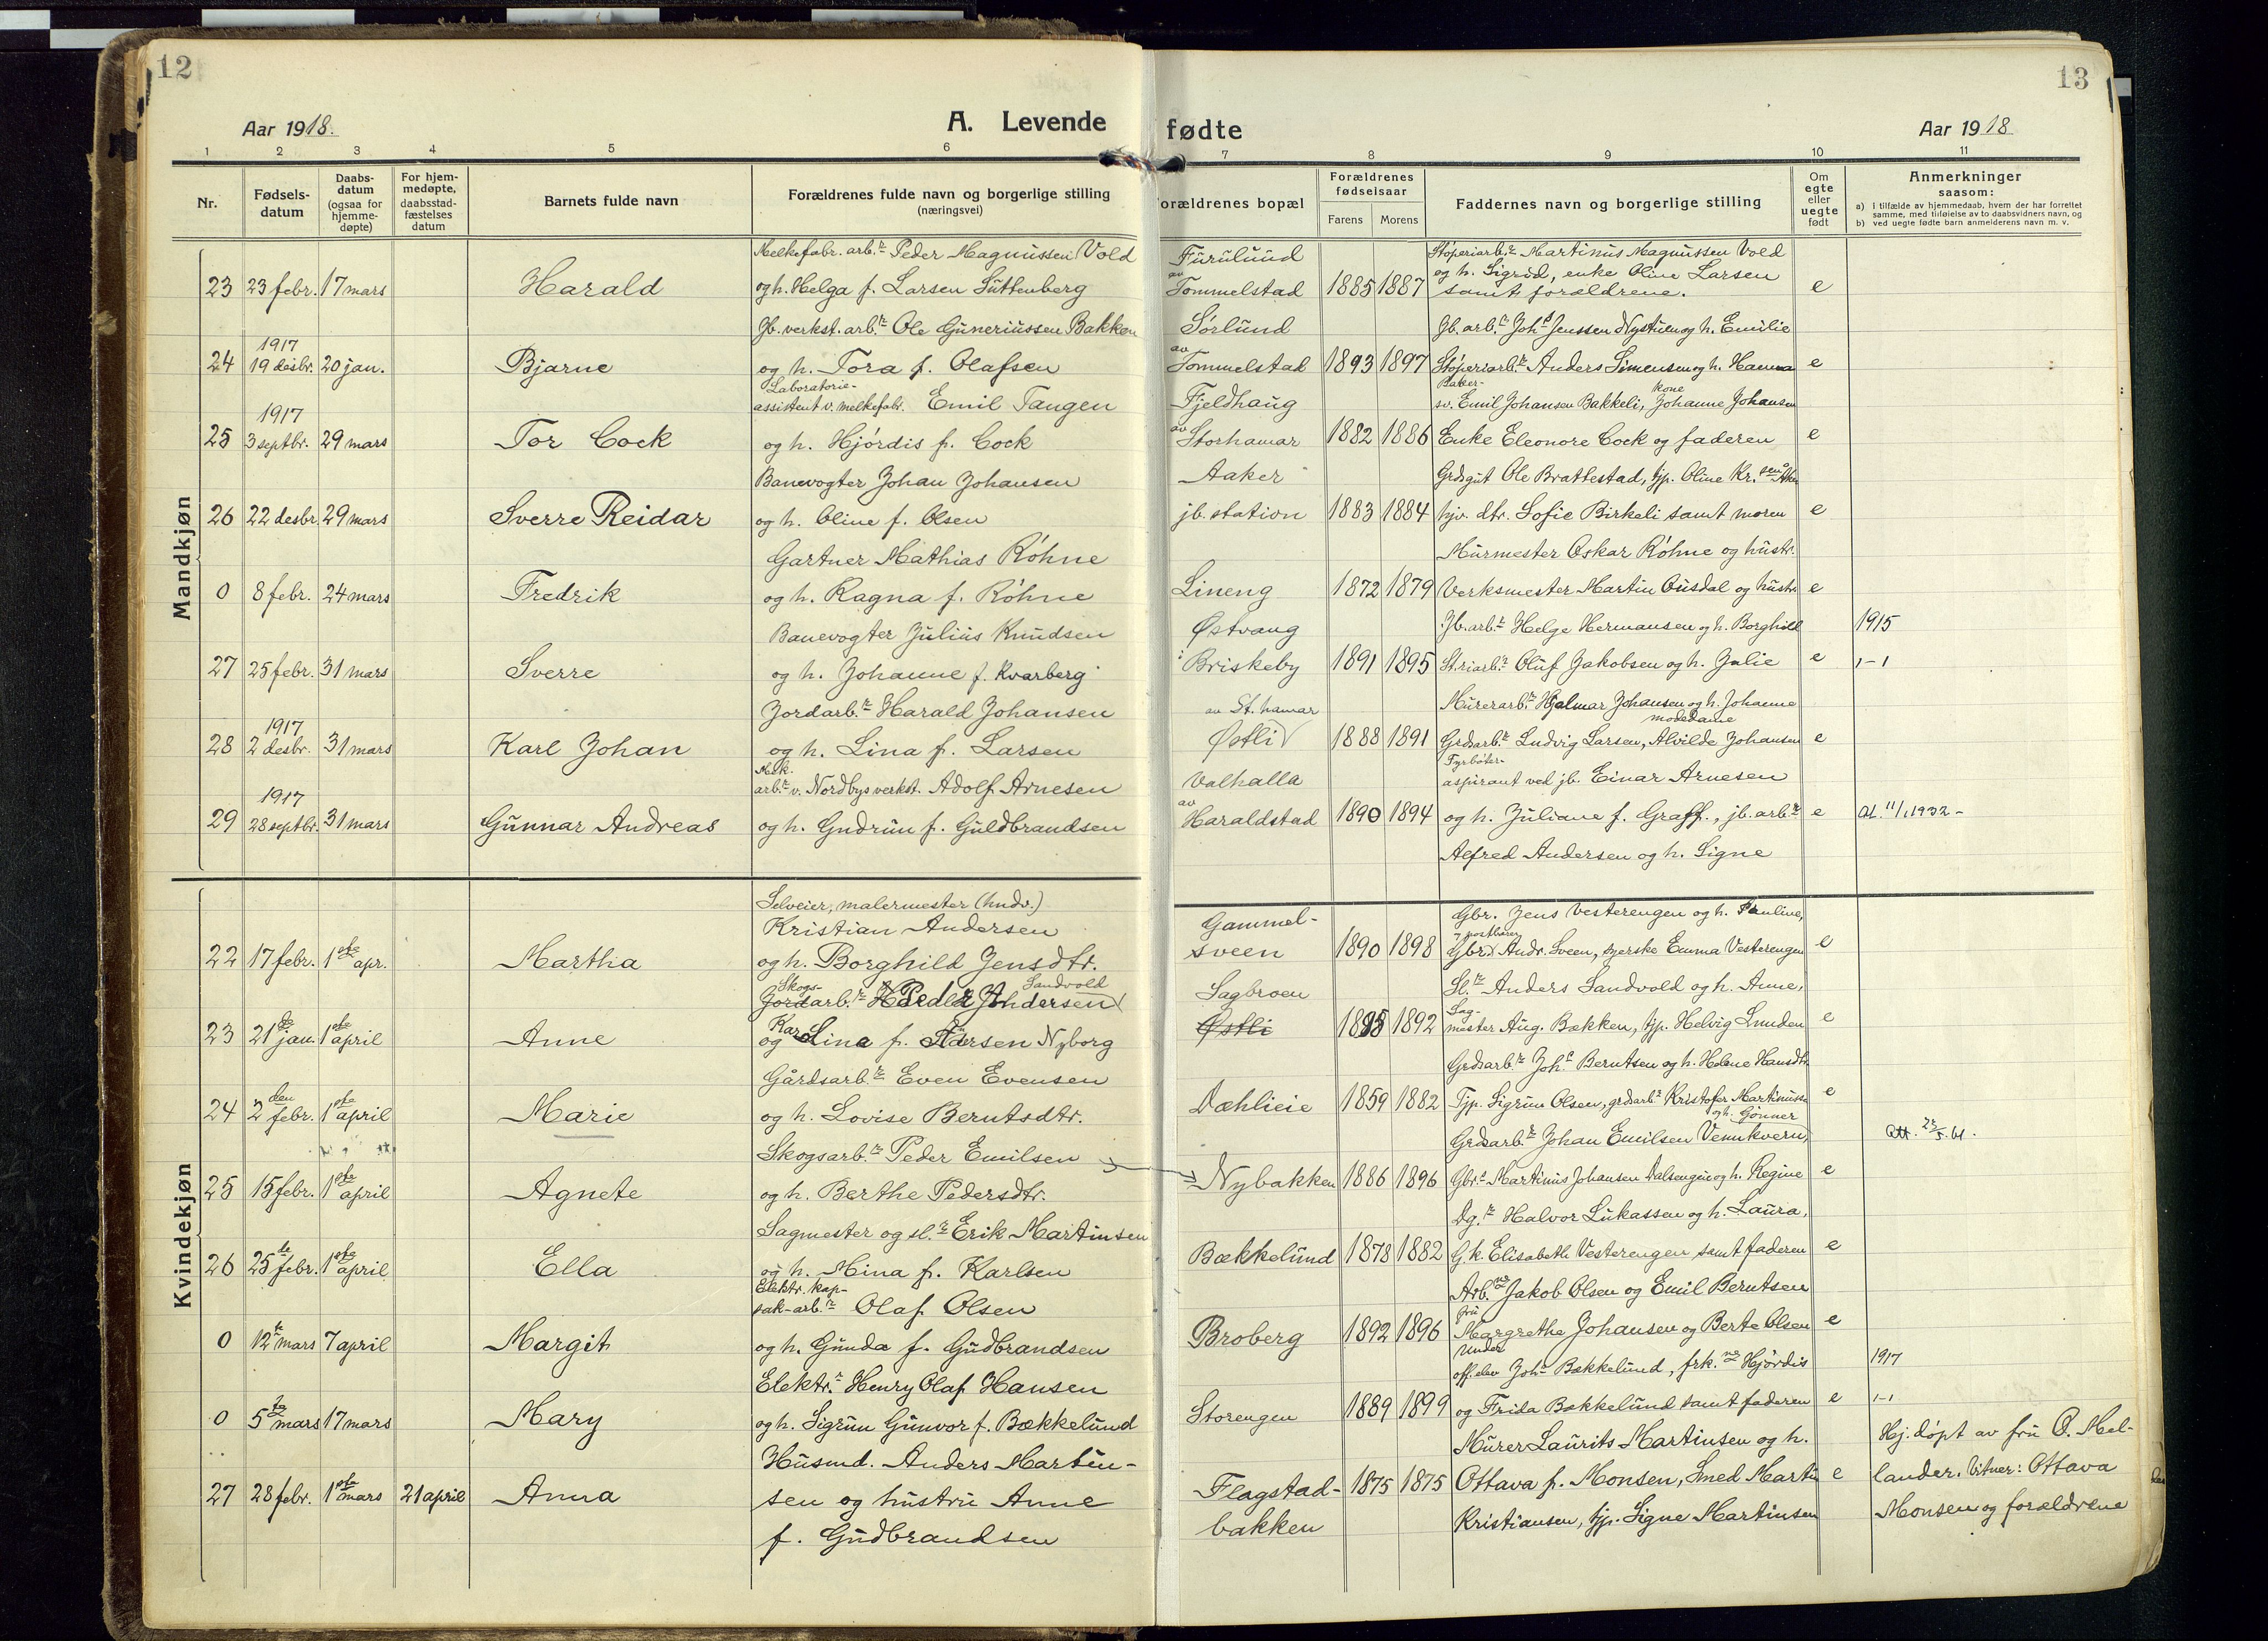 12
13
Aar 1918.
A. Levende
fødte
Aar 1918
1 2 3 4 5 6 7 8 9 10 11
Nr.
Fødsels-
datum
Daabs-
datum
(ogsaa for
hjemme-
døpte)
For hjem-
medøpte,
daabsstad-
fæstelses
datum
Barnets fulde navn
Forældrenes fulde navn og borgerlige stilling
(næringsvei)
orældrenes bopæl
Forældrenes
fødselsaar
Farens Morens
Faddernes navn og borgerlige stilling
Om
egte
eller
uegte
født
Anmerkninger
saasom:
a) i tilfælde av hjemmedaab, hvem der har forrettet
samme, med tilføielse av to daabsvidners navn, og
b) ved uegte fødte barn anmelderens navn m. v.
Mandkjøn
Melkefabr. arb.r Peder Magnussen Vold Furulund Støperiarb.r Martinus Magnussen Vold
23 23 febr. 17 mars Harald og h. Helga f. Larsen Luttenberg av Tommelstad 1885 1887 og h. Sigrid, enke Oline Larsen e
samt forældrene.
Jb. verkst. arb.r Ole Guneriussen Bakken Sørlund Jb. arb.r Joh.s Jenssen Nystuen og h. Emilie
1917
24 19 desbr. 20 jan. Bjarne og h. Tora f. Olafsen av Tommelstad 1893 1897 Støperiarb.r Anders Simensen og h. Hanna e
Laboratorie-
assistent v. melkefabr. Emil Tangen Fjeldhaug Baker-
sv. Emil Johansen Bakkeli, kone Johanne Johansen
1917
25 3 septbr. 29 mars Tor Cock og h. Hjørdis f. Cock av Storhamar 1882 1886 Enke Eleonore Cock og faderen e
Banevogter Johan Johansen Aaker Grdsgut Ole Brattestad, tjp. Oline Kr.sen
26 22 desbr. 29 mars Sverre Reidar og h. Oline f. Olsen jb. station 1883 1884 hjv. dtr. Sofie Birkeli samt moren e
Gartner Mathias Røhne Murmester Oskar Røhne og hustr.
0 8 febr. 24 mars Fredrik og h. Ragna f. Røhne Lineng 1872 1879 Verksmester Martin Ousdal og hustr. e
Banevogter Julius Knudsen Østvang Jb. arb.r Helge Hermansen og h. Borghild 1915
27 25 febr. 31 mars Sverre og h. Johanne f. Kvarberg i Briskeby 1891 1895 St.riarb.r Oluf Jakobsen og h. Julie e 1-1
Jordarb.r Harald Johansen av St. hamar Murerarb.r Hjalmar Johansen og h. Johanne
1917 modedame
28 2 desbr. 31 mars Karl Johan og h. Lina f. Larsen Østli 1888 1891 Grdsarb.r Ludvig Larsen, Alvilde Johansen e
Mek.
arb.r v. Nordbys verkst. Adolf Arnesen Valhalla Fyrbøter-
aspirant ved jb. Einar Arnesen
1917
29 28 septbr. 31 mars Gunnar Andreas og h. Gudrun f. Guldbrandsen av Haraldstad 1890 1894 og h. Juliane f. Graff., jb. arb.r e At. 11/1 1932 -
Alfred Andersen og h. Signe
Kvindekjøn
Selveier, malermester (hndv.)
Kristian Andersen Gammel- Gbr. Jens Vesterengen og h. Pauline,
22 17 febr. 1ste apr. Martha og h. Borghild Jensdtr. sveen 1890 1898 Gbr. og postbærer Andr. Sveen, syerske Emma Vesterengen e
Skogs- Sandvold
arb.r Peder Andersen Sagbroen Sl.r Anders Sandvold og h. Anne,
23 21de jan. 1ste april Anne og Karoline f. Andersen Nyborg Østli 1885 1892 Sag-
mester Aug. Bækken, tjp. Helvig Lunden e
Gårdsarb.r Even Evensen Grdsarb.r Joh.s Berntsen og h. Helene Hansdtr.
24 2den febr. 1ste april Marie og h. Lovise Berntsdtr. Dæhlieie 1859 1882 Tjp. Sigrun Olsen, grdsarb.r Kristofer Martinussen e
og h. Gunner
Skogsarb.r Peder Emilsen Grdsarb.r Johan Emilsen Vennkvern, Att. 23/5.61.
25 15 febr. 1ste april Agnete og h. Berthe Pedersdtr. Nybakken 1886 1896 Gbr.r Martinus Johansen Dalsengen og h. Regine e
Sagmester og sl.r Erik Martinsen Dg.r Halvor Lukassen og h. Laura,
26 25de febr. 1ste april Ella og h. Mina f. Karlsen Bækkelund 1878 1882 G.k. Elisabeth Vesterengen samt faderen e
Elektr. kap-
sak-arb.r Olaf Olsen Arb.ne Jakob Olsen og Emil Berntsen
0 12te mars 7 april Margit og h. Gunda f. Gudbrandsen Broberg 1892 1896 fru Margrethe Johansen og Berte Olsen e
Elektr.r Henry Olaf Hansen Under
off. elev Joh.s Bækkelund, frk.ne Hjørdis 1917
0 5te mars 17 mars Mary og h. Sigrun Gunvor f. Bækkelund Storengen 1889 1899 og Frida Bækkelund samt faderen e 1-1
Husmd. Anders Martin- Murer Laurits Martinsen og h. Hj. døpt av fru O. Mel-
27 28 febr. 1ste mars 21 april Anna sen og hustru Anne Flagstad- 1875 1875 Ottava f. Monsen, Smed Martin e lander. Vitner: Ottava
f. Gudbrandsen bakken Kristiansen, tjp. Signe Martinsen Monsen og forældrene